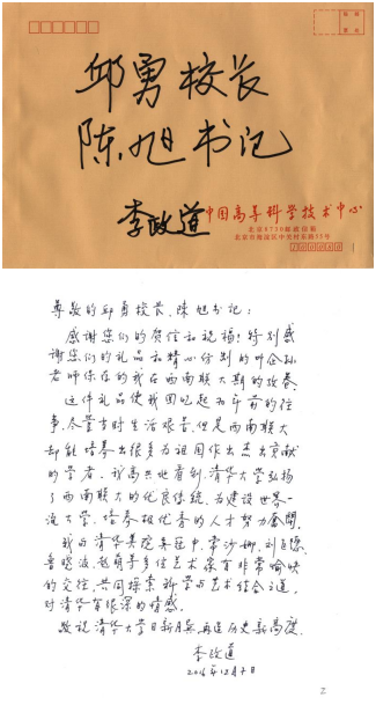 邱勇校长
陈旭书记
李政道
中国高等科学技术中心
北京8730邮政信箱
北京市海淀区中关村东路55号
尊敬的邱勇校长、陈旭书记:
感谢您们的贺信和祝福!特别感
谢您们的礼品和精心仿制的叶企孙
老师保存的我在西南联大期的考卷
这件礼品使我回忆起为年前的往
事。尽管当时生活艰苦,但是西南联大
却能培养出很多为祖国作出杰出贡献
的学者。我高兴地看到,清华大学弘扬
了西南联大的优良传统,为建设世界一
流大学、培养极优秀的人才努力奋斗。
我与清华美院吴冠中、常沙娜、刘巨德、
鲁晓波、赵萌等多位艺术家有非常愉快
的交往,共同探索科学与艺术结合之道,
对清华有很深的情感。
敬祝清华大学日新月异,再造历史新高度。
李政道
2016年12月7日
2